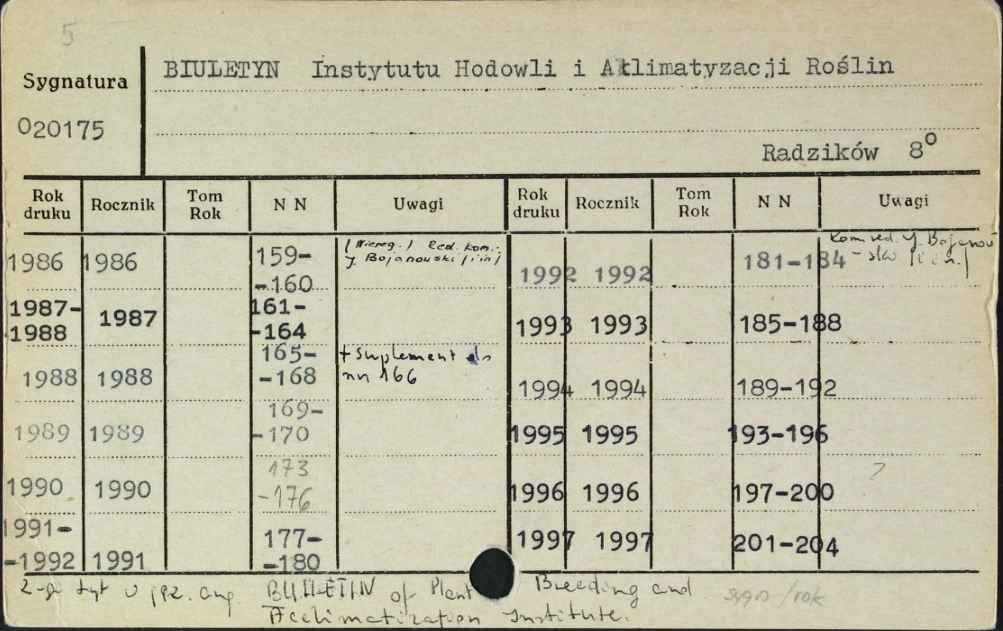 5
Sygnatura
020175
BIULETYN Instytutu Hodowli i Aklimatyzacji Roślin
Radzików 8°
Rok druku Rocznik Tom Rok N N Uwagi Rok druku Rocznik Tom Rok N N Uwagi
1986 1986 159--160 (Niereg.) Red. kom. J. Bojanowski [i in]
1987-1988 1987 161--164
1988 1988 165--168 + Suplement do nn 166
1989 1989 169--170
1990 1990 173-176
1991--1992 1991 177--180
1992 1992 181-184 kom red. J. Bojanow-ski [i in.]
1993 1993 185-188
1994 1994 189-192
1995 1995 193-196
1996 1996 197-200
1997 1997 201-204
2-gi tyt w jęz. ang. BULLETIN of Plant Breeding and
Acclimatization Institute.
/rok